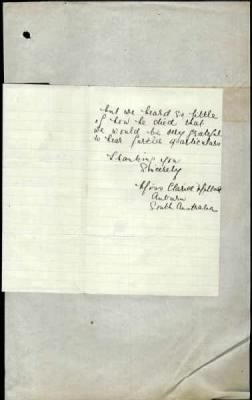 but we heard so little
of how he died that
we would be very grateful
to hear further particulars
Thanking you
Sincerely
Miss Clarice
Auburn
South Australia